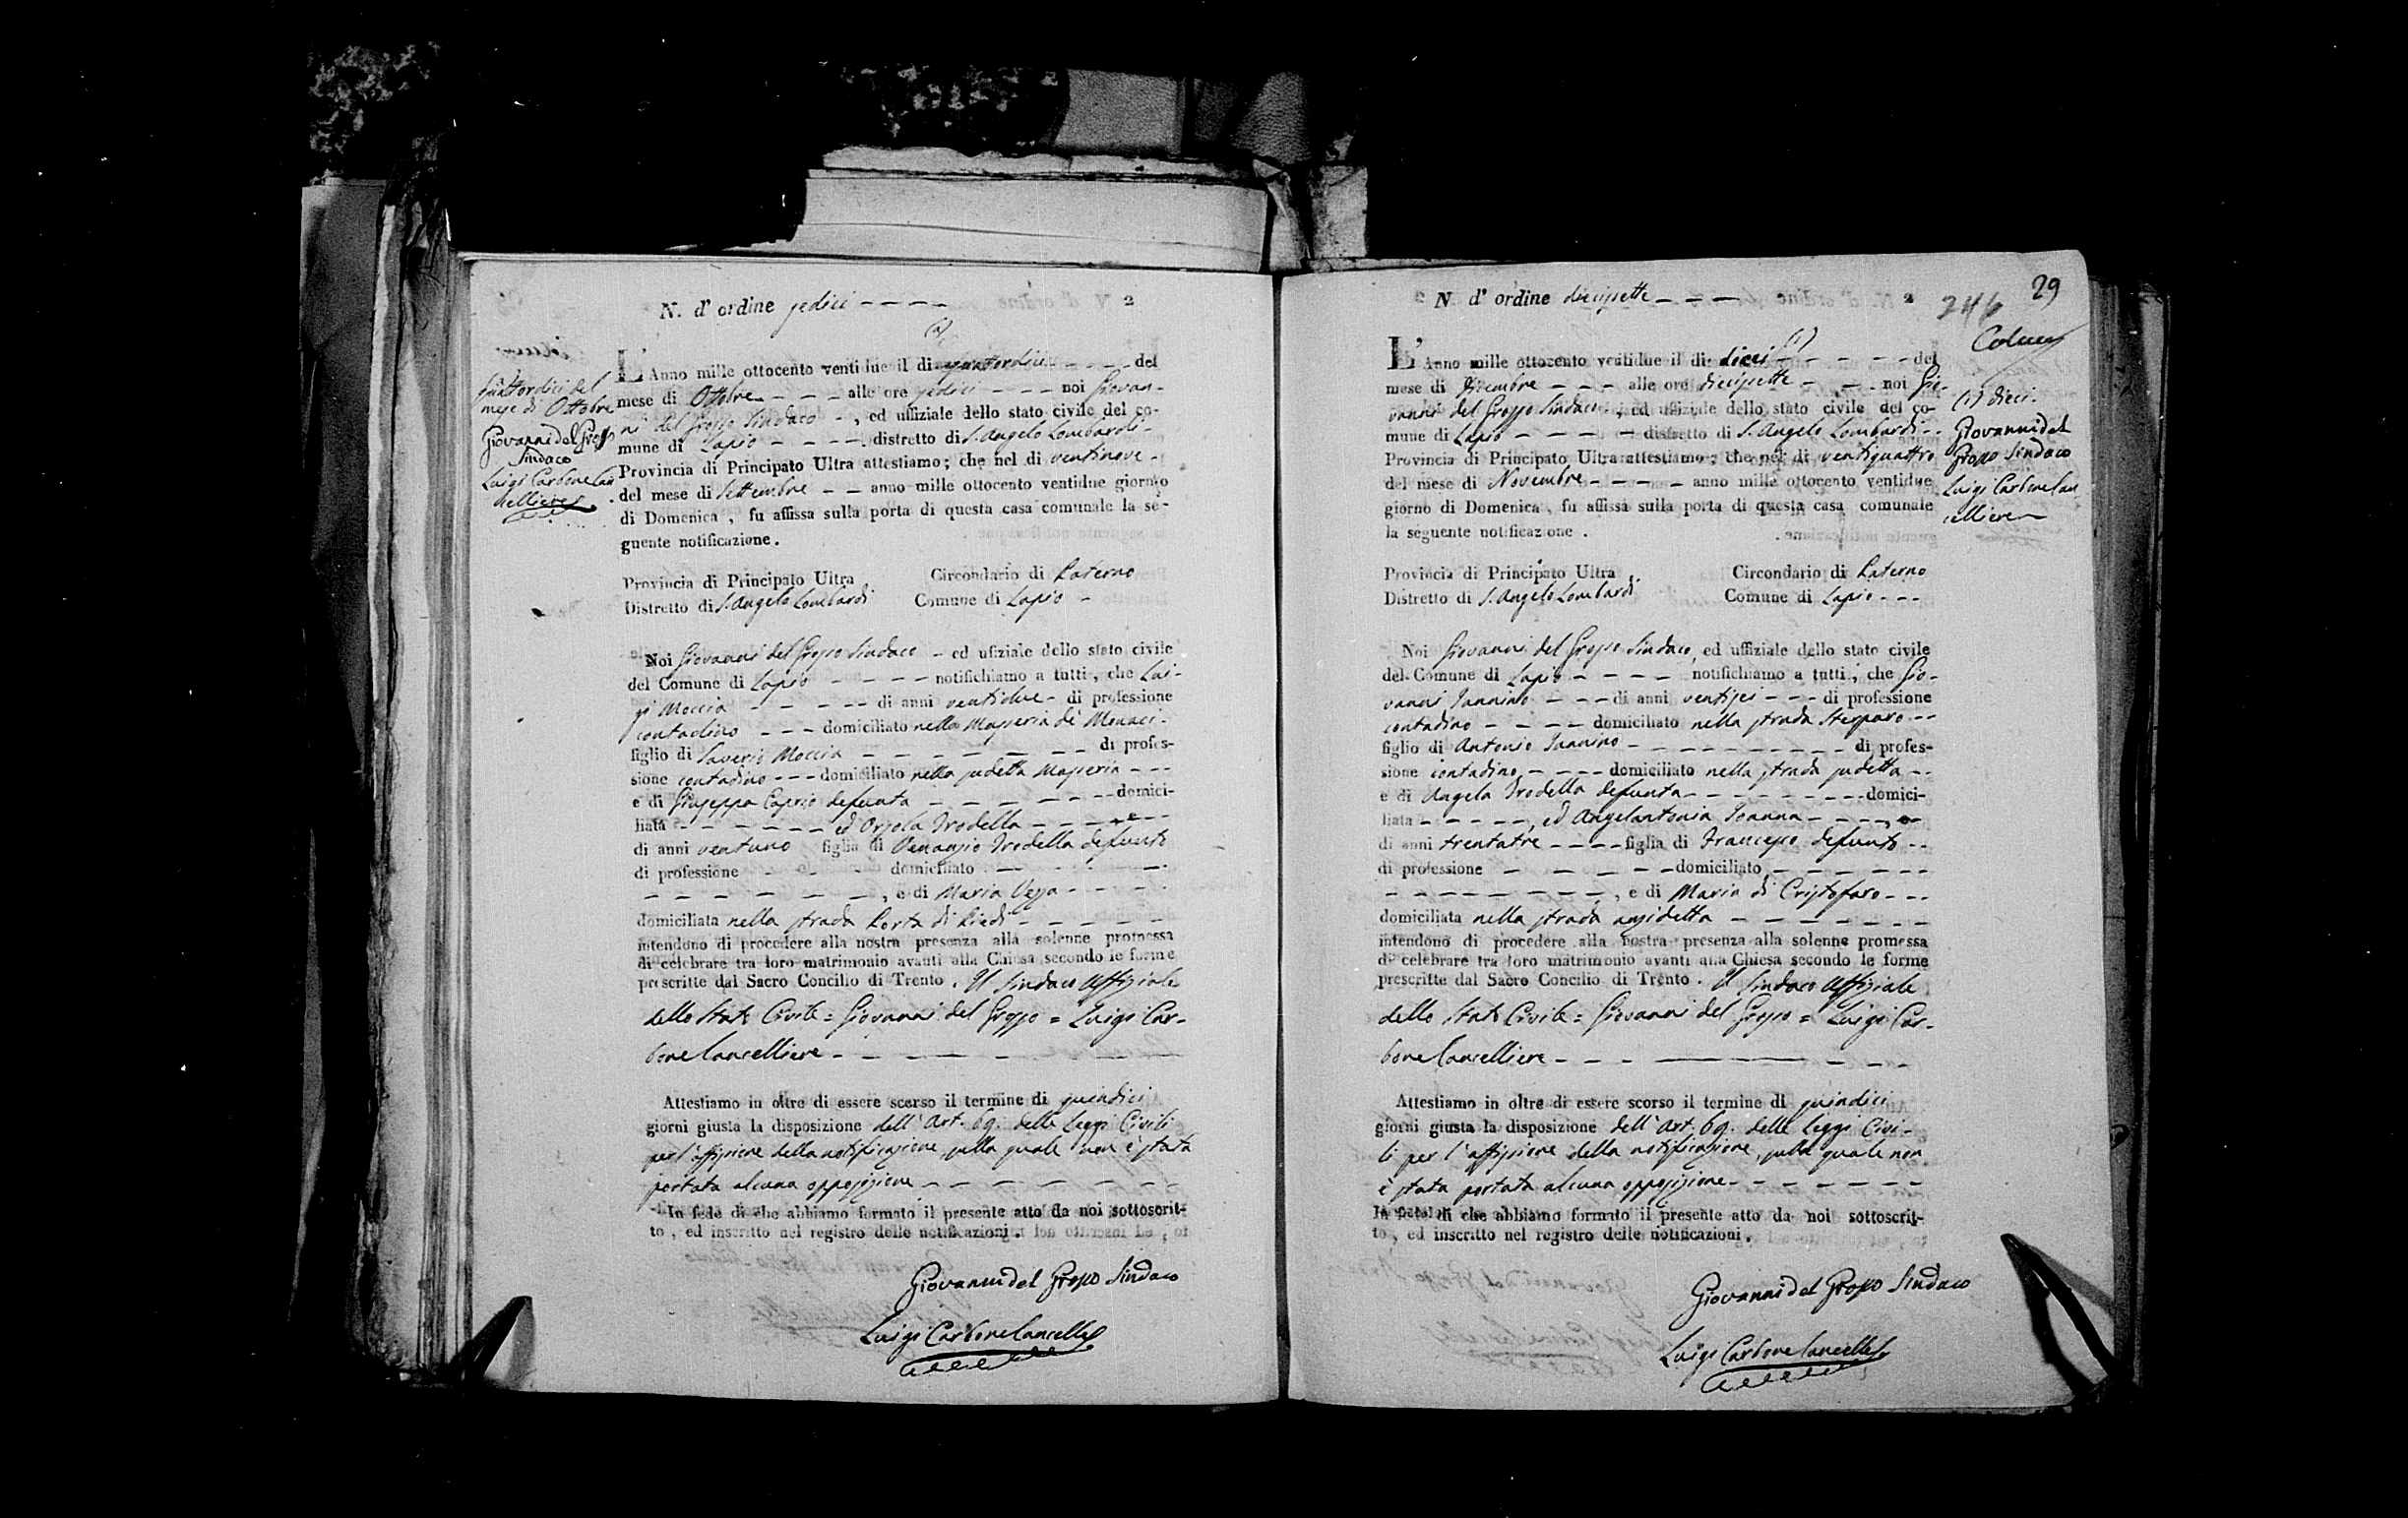 N. d' ordine sedici - - - -
2
(a)
L' Anno mille ottocento ventidue il di quatordici - - - - del
mese di Ottobre - - - - alle ore sedici - - - noi Giovan-
ni del Grosso Sindaco - , ed uffiziale dello stato civile del co-
mune di Lapio - - - - . distretto di S. Angelo Lombardi -
Provincia di Principato Ultra attestiamo ; che nel di ventinove -
del mese di Settembre - - anno mille ottocento ventidue giorno
di Domenica , fu affissa sulla porta di questa casa comunale la se-
guente notificazione .
quattordici del
mese di Ottobre
Giovanni del Grosso
Sindaco
Luigi Carbone Can
celliere
Provincia di Principato Ultra
Circondario di Paterno
Distretto di S. Angelo Lombardi
Comune di Lapio -
Noi Giovanni del Grosso Sindaco - ed ufiziale dello stato civile
del Comune di Lapio - - - - - notifichiamo a tutti , che Lui-
gi Moccia - - - - - di anni ventidue - di professione
contadino - - - domiciliato nella Masseria de' Monaci -
figlio di Saverio Moccia - - - - - - - di profes-
sione contadino - - - domiciliato nella sudetta Masseria - - -
e di Giuseppa Caprio defunta - - - - - - - domici-
liata - - - - - - ed Orsola Trodella - - - - - -
di anni ventuno figlia di Venanzio Trodella defunto
di professione - - - domiciliato - - - -
- - - - - - - , e di Maria Vessa - - - -
domiciliata nella strada Porta di Piedi - - - - - -
intendono di procedere alla nostra presenza alla solenne promessa
di celebrare tra loro matrimonio avanti alla Chiesa secondo le forme
prescritte dal Sacro Concilio di Trento . Il Sindaco Uffiziale
dello Stato Civile = Giovanni del Grosso = Luigi Car-
bone Cancelliere - - - - - - - -
Attestiamo in oltre di essere scorso il termine di quindici
giorni giusta la disposizione dell' Art. 69. delle Leggi Civili
per l'affissione della notificazione, sulla quale non è stata
portata alcuna opposizione - - - - - - -
In fede di che abbiamo formato il presente atto da noi sottoscrit-
to , ed inscritto nel registro delle notificazioni .
Giovanni del Grosso Sindaco
Luigi Carbone Cancelle
N d' ordine diecisette - - -
2
246
29
(1)
L' Anno mille ottocento ventidue il di dieci - - - - - - del
mese di Dicembre - - - alle ore diecisette - - - noi Gio-
vanni del Grosso Sindaco - , ed uffiziale dello stato civile del co-
mune di Lapio - - - - - distretto di S. Angelo Lombardi - -
Provincia di Principato Ultra attestiamo ; che nel di ventiquattro
del mese di Novembre - - - - anno mille ottocento ventidue
giorno di Domenica , fu affissa sulla porta di questa casa comunale
la seguente notificazione .
(1) dieci.
Giovanni del
Grosso Sindaco
Luigi Carbone Can
celliere
Provincia di Principato Ultra
Circondario di Paterno
Distretto di S. Angelo Lombardi
Comune di Lapio - - -
Noi Giovanni del Grosso Sindaco, ed uffiziale dello stato civile
del Comune di Lapio - - - - notifichiamo a tutti ; che Gio-
vanni Iannino - - - di anni ventisei - - - di professione
contadino - - - - domiciliato nella strada Sterparo - -
figlio di Antonio Iannino - - - - - - - - - di profes-
sione contadino - - - - domiciliato nella strada sudetta - -
e di Angela Trodella defunta - - - - - - - - - domici-
liata - - - - - , ed Angelantonia Ioanna - - - - -
di anni trentatre - - - - figlia di Francesco defunto - -
di professione - - - - - domiciliato - - - - - -
- - - - - - - - , e di Maria di Cristofaro - - -
domiciliata nella strada anzidetta - - - - - - -
intendono di procedere alla nostra presenza alla solenne promessa
di celebrare tra loro matrimonio avanti alla Chiesa secondo le forme
prescritte dal Sacro Concilio di Trento . Il Sindaco Uffiziale
dello Stato Civile = Giovanni del Grosso = Luigi Car-
bone Cancelliere - - - - - - -
Attestiamo in oltre di essere scorso il termine di quindici
giorni giusta la disposizione dell' Art. 69. delle Leggi Civi-
li per l' affissione della notificazione, sulla quale non
è stata portata alcuna opposizione - - - - - - -
In fede di che abbiamo formato il presente atto da noi sottoscrit-
to , ed inscritto nel registro delle notificazioni .
Giovanni del Grosso Sindaco
Luigi Carbone Cancelle